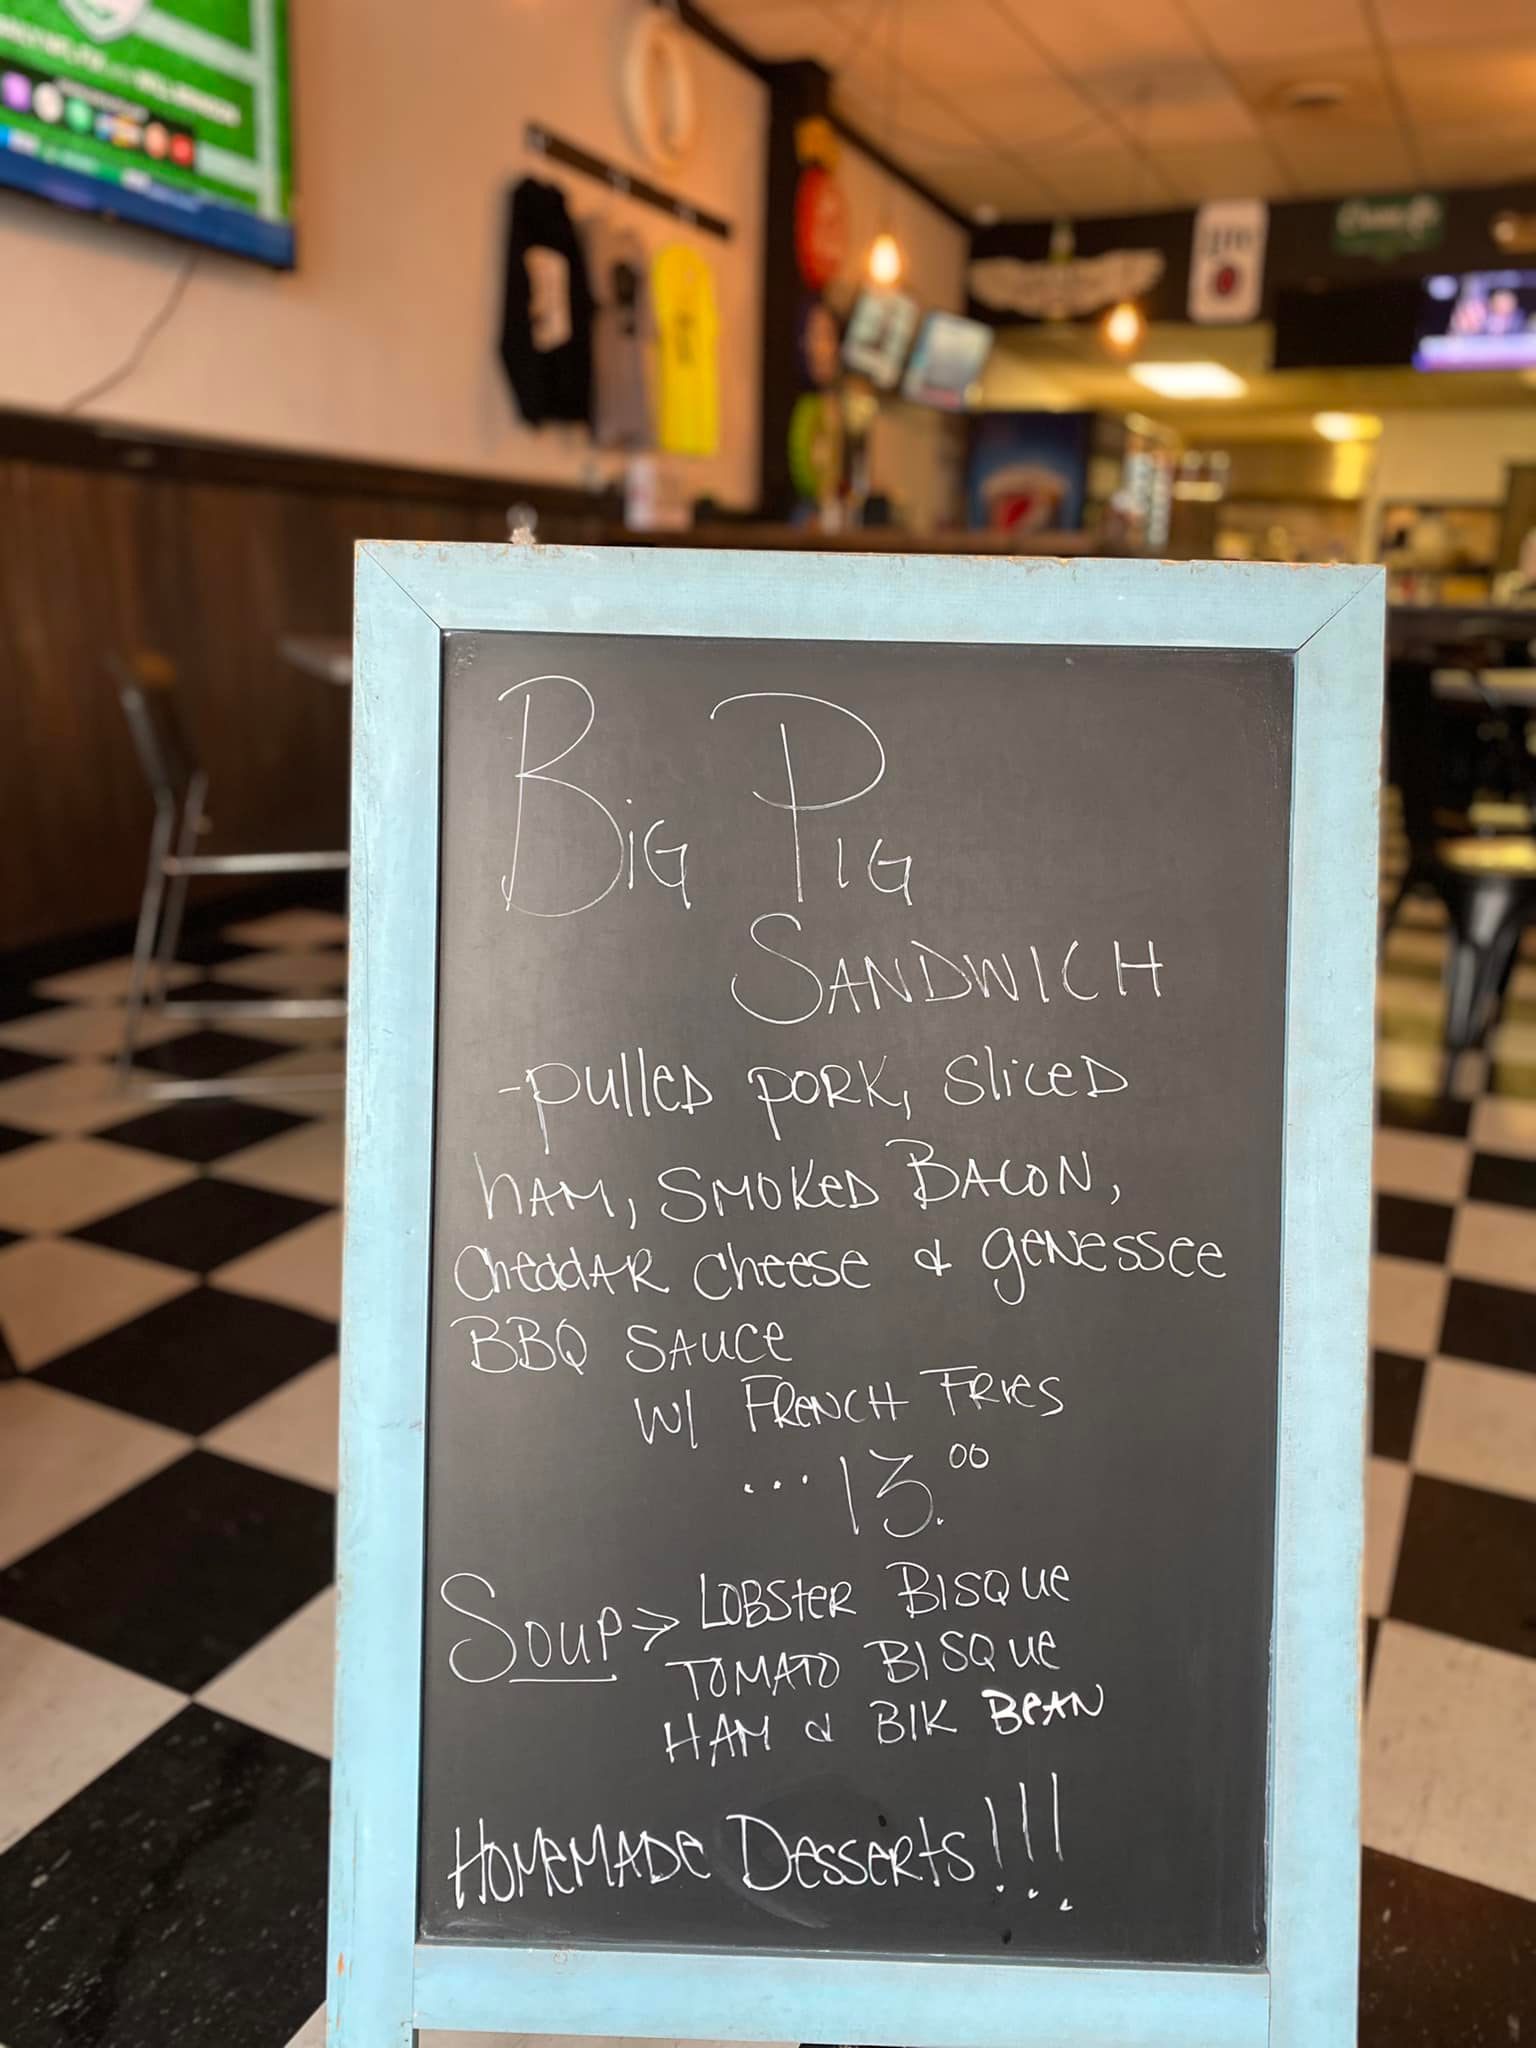 Big Pig
Sandwich
-pulled pork, sliced
ham, smoked Bacon,
cheddar cheese & genessee
BBQ sauce
w/ French Fries
...13.00
Soup> Lobster Bisque
Tomato Bisque
Ham & Blk Bean
Homemade Desserts!!!